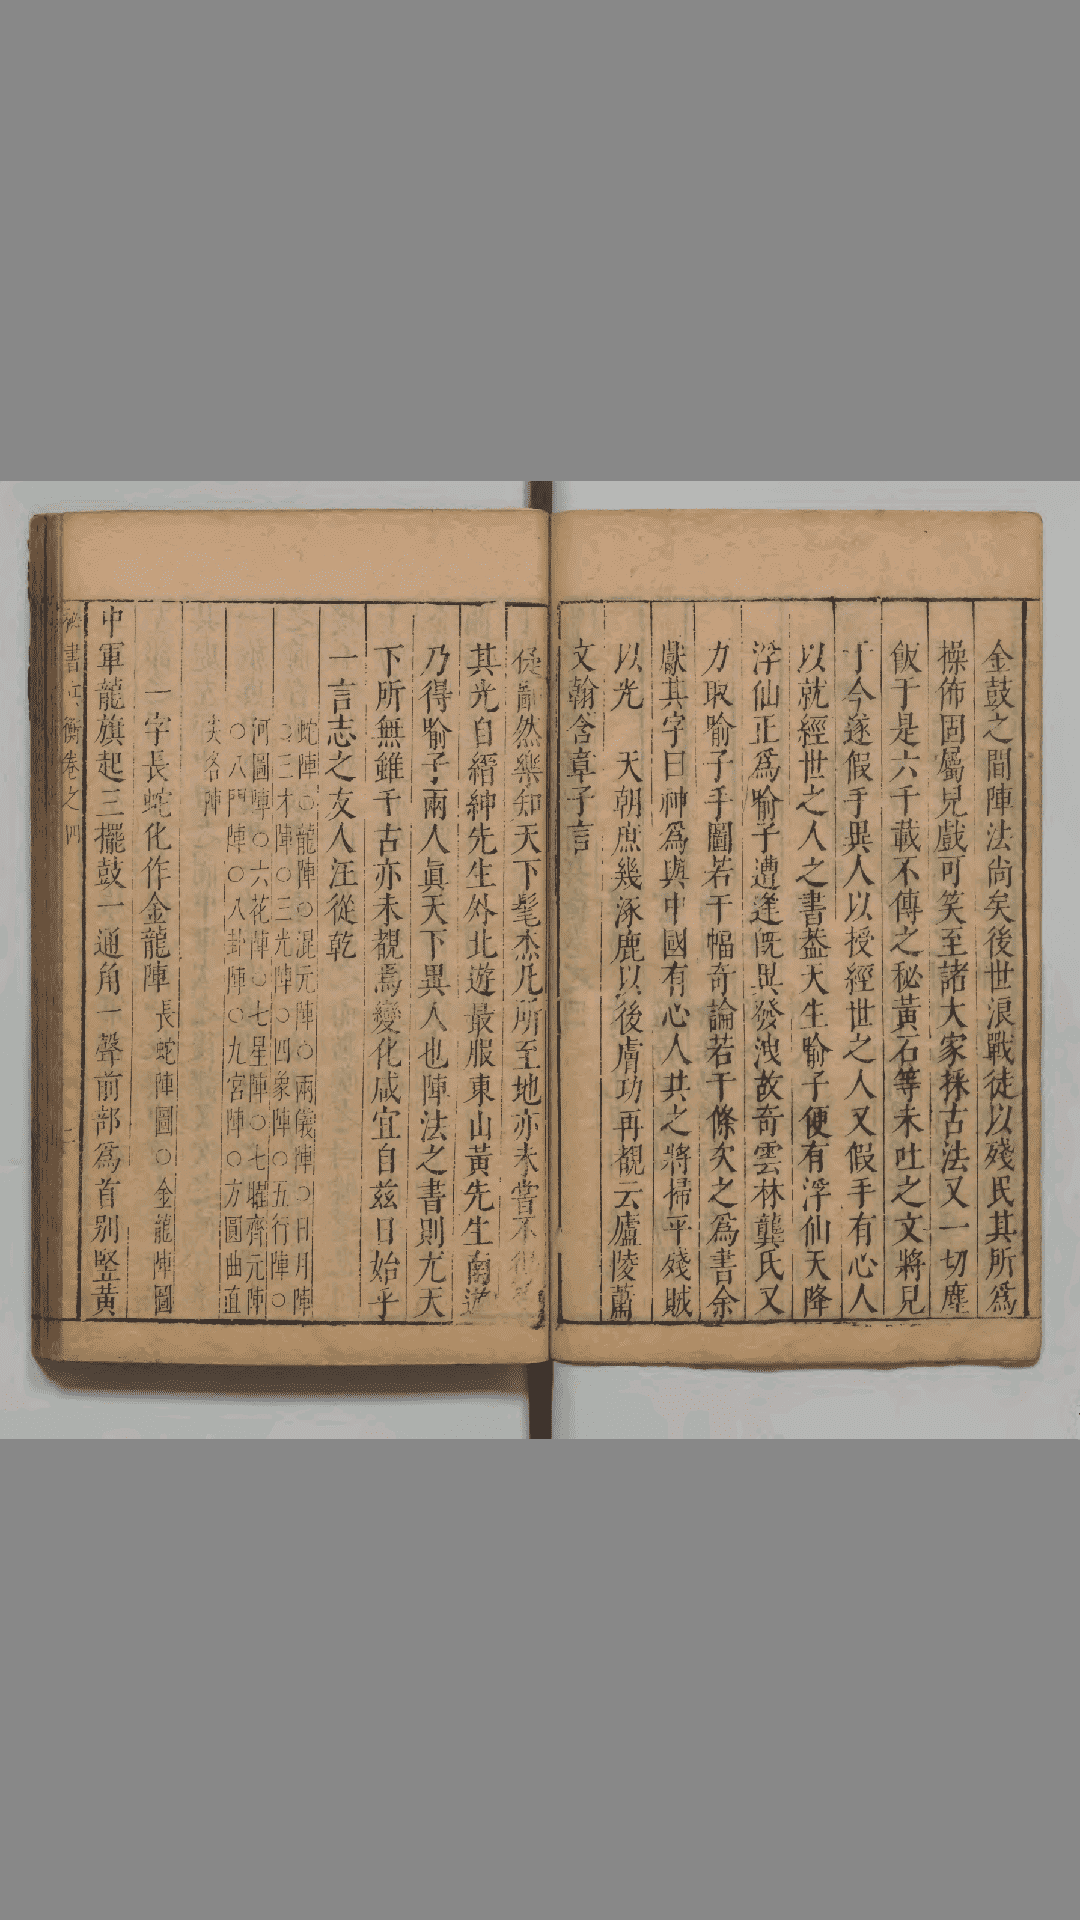 金鼓之間陣法尚矣後世浪戰徒以殘民其所爲
操佈固屬兒戲可笑至諸大家採古法又一切塵
飯于是六千載不傳之秘黃石等未吐之文將兒
丁今遂假手異人以授經世之人又假手有心人
以就經世之人之書葢天生喻子便有浮仙天降
浮仙正爲喻子遭逢旣異發洩故奇雲林龔氏又
力取喻子手圖若干幅奇論若干條次之爲書余
獻其字曰神爲與中國有心人共之將掃平殘賊
以光 天朝庶幾涿鹿以後膚功再覩云廬陵蕭
文翰含章子言
從 然樂知天下髦杰凡所至地亦未嘗不
其光自縉紳先生外北遊最服東山黃先生南遊
乃得喻子兩人眞天下異人也陣法之書則尤天
下所無雖千古亦未覩焉變化咸宜自茲日始乎
一言志之友人汪從乾
蛇陣○龍陣○混元陣○兩儀陣○日月陣
○三才陣○三光陣○四象陣○五行陣○
河圖陣○六花陣○七星陣○七曜齊元陣
○八門陣○八卦陣○九宮陣○方圓曲直
陣
一字長蛇化作金龍陣 長蛇陣圖○金龍陣圖
中軍龍旗起三擺鼓一通角一聲前部爲首别竪黃
書 衡卷之四 二